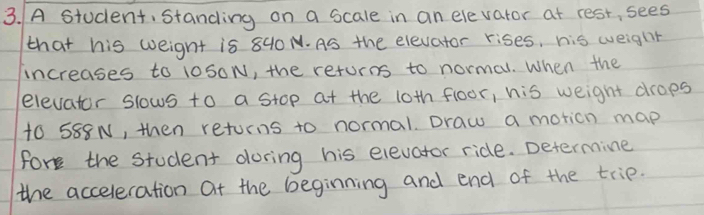 3. A student, standing on a scale in an elevator at rest, sees
that his weight is 840 N. As the elevator rises, his weight
increases to 1050N, the returns to normal. When the
elevator slows to a stop at the 10th floor, his weight drops
to 588 N, then returns to normal. Draw a motion map
fore the student during his elevator ride. Determine
the acceleration at the beginning and end of the trip.